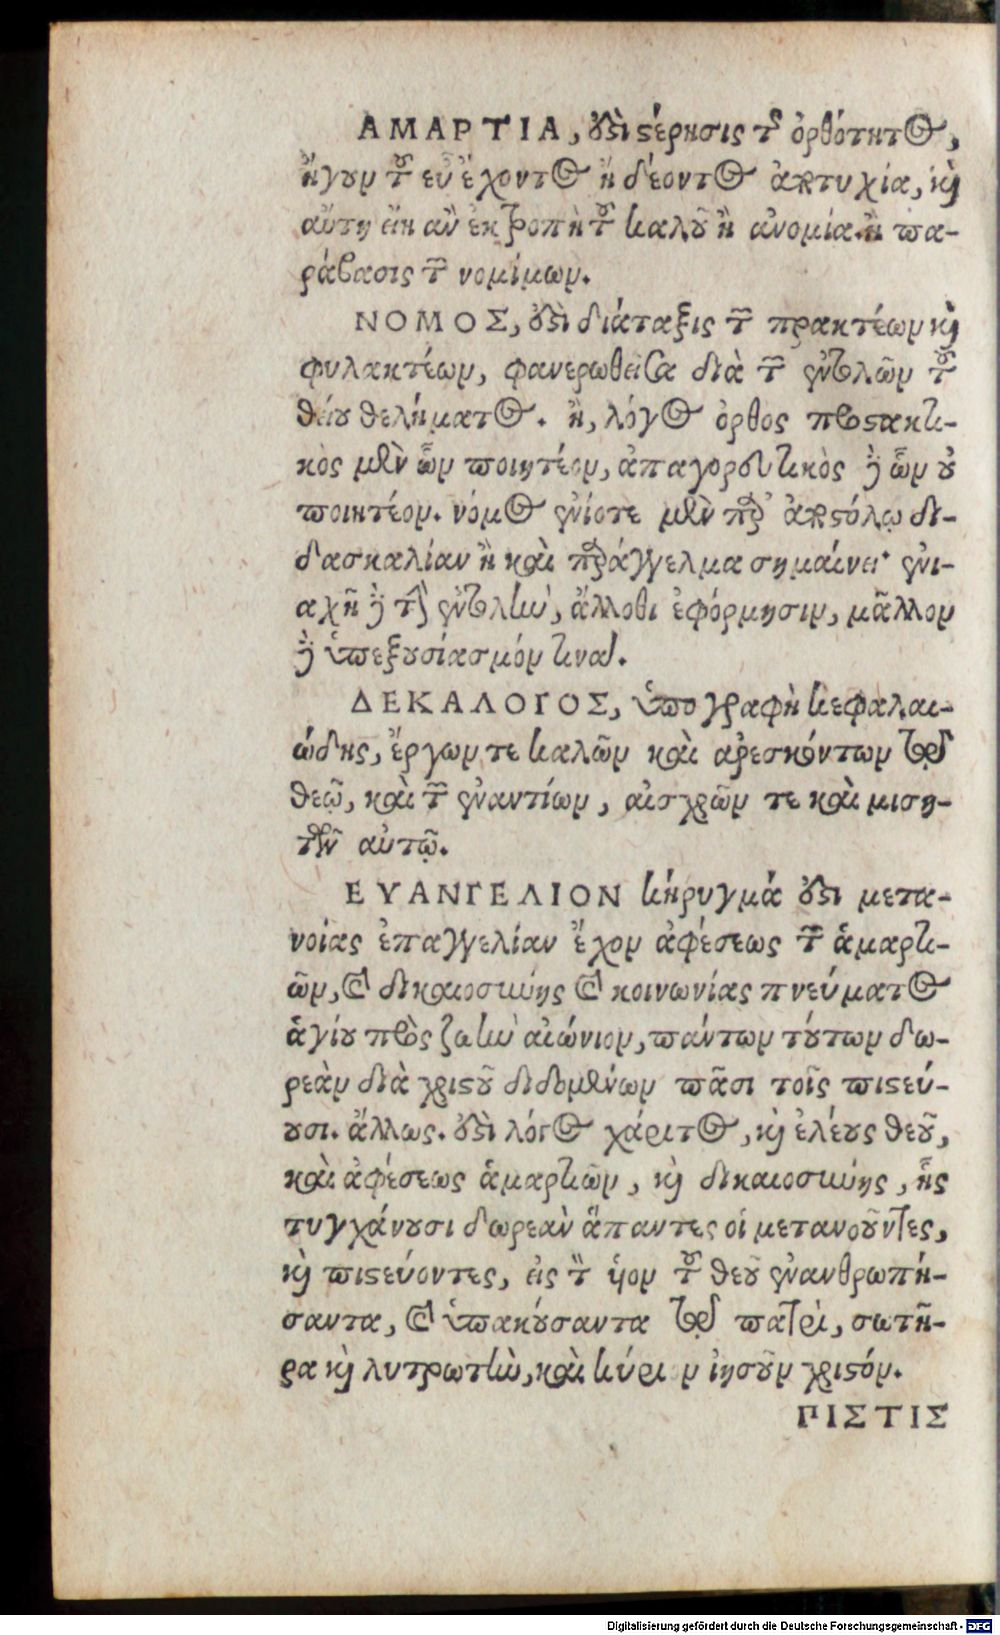 ΑΜΑΡΤΙΑ, ἐστὶ στέρησις τῆς ὀρθότητος,
ἤγουν τοῦ εὖ ἔχοντος ἢ δέοντος ἀποτυχία, καὶ
αὕτη εἴη ἂν ἐκτροπὴ τοῦ καλοῦ ἢ ἀνομία. ἢ πα-
ράβασις τῶν νομίμων.
ΝΟΜΟΣ, ἐστὶ διάταξις τῶν πρακτέων καὶ
φυλακτέων, φανερωθεῖσα διὰ τῶν ἐντολῶν τοῦ
θείου θελήματος. ἢ, λόγος ὀρθος προστακτι-
κὸς μὲν ὧν ποιητέον, ἀπαγορευτικὸς δὲ ὧν οὐ
ποιητέον. νόμος ἐνίοτε μὲν παρ' ἀποστόλῳ δι-
δασκαλίαν ἢ καὶ παράγγελμα σημαίνει· ἐνι-
αχῆ δὲ τὴν ἐντολὴν, ἄλλοθι ἐφόρμησιν, μᾶλλον
δὲ ὑπεξουσίασμόν τινα.
ΔΕΚΑΛΟΓΟΣ, ὑπογραφὴ κεφαλαι-
ώδης, ἔργων τε καλῶν καὶ ἀρεσκόντων τῷ
θεῷ, καὶ τῶν ἐναντίων, αἰσχρῶν τε καὶ μιση-
τῶν αὐτῷ.
ΕΥΑΝΓΕΛΙΟΝ κήρυγμά ἐστι μετα-
νοίας ἐπαγγελίαν ἔχον ἀφέσεως τῶν ἁμαρτι-
ῶν, καὶ δικαιοσύνης καὶ κοινωνίας πνεύματος
ἁγίου πρὸς ζωὴν αἰώνιον, πάντων τούτων δω-
ρεὰν διὰ χριστοῦ διδομένων πᾶσι τοῖς πιστεύ-
ουσι. ἄλλως. ἐστὶ λόγος χάριτος, καὶ ἐλέους θεοῦ,
καὶ ἀφέσεως ἁμαρτιῶν, καὶ δικαιοσύνης, ἧς
τυγχάνουσι δωρεὰν ἅπαντες οἱ μετανοοῦντες,
καὶ πιστεύοντες, εἰς τὸν υἱὸν τοῦ θεοῦ ἐνανθρωπή-
σαντα, καὶ ὑπακούσαντα τῷ πατρὶ, σωτῆ-
ρα καὶ λυτρωτὴν, καὶ κύριον ἰησοῦν χριστόν.
ΠΙΣΤΙΣ
Digitalisierung gefördert durch die Deutsche Forschungsgemeinschaft - DFG